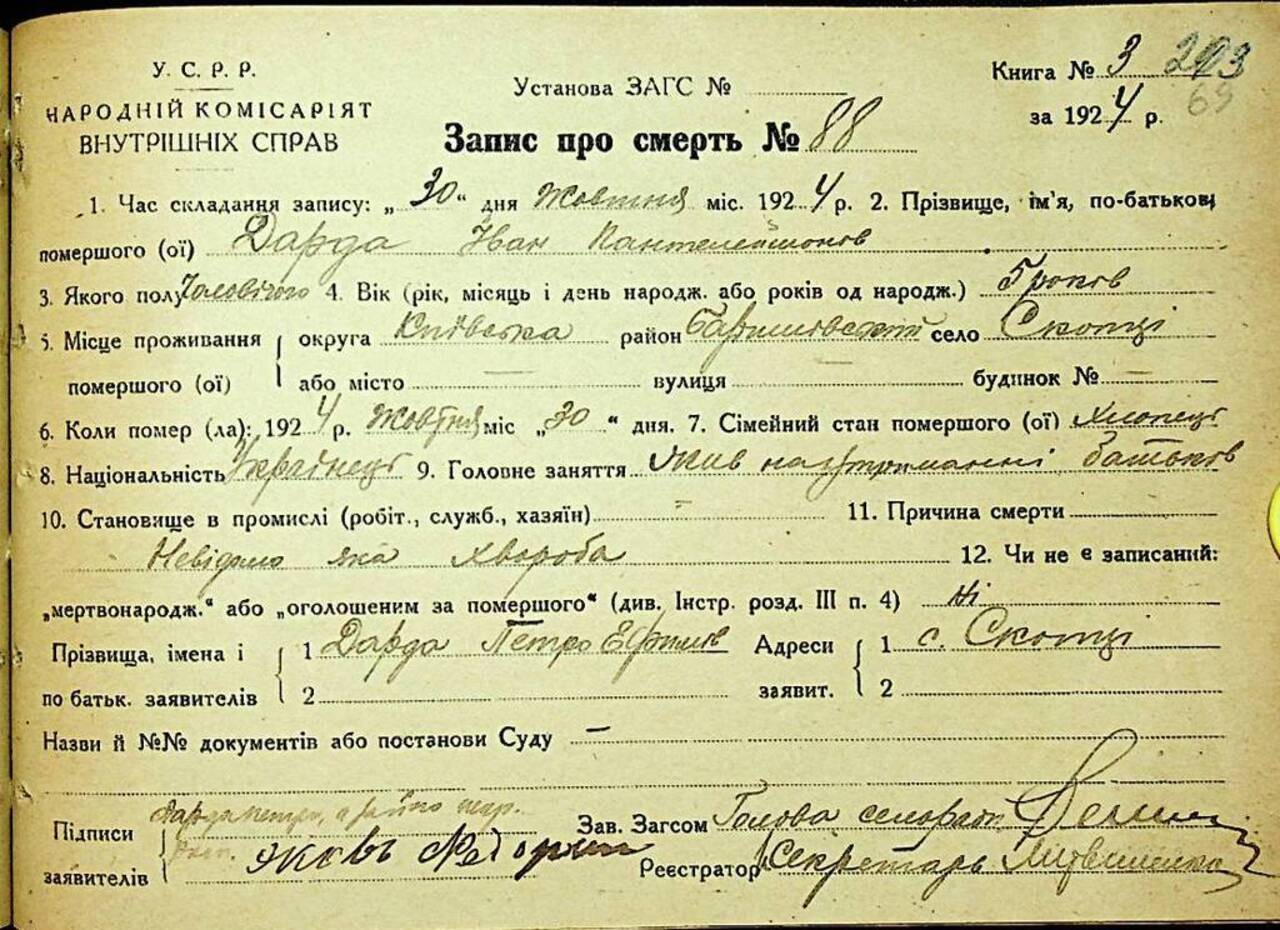 У. С. Р. Р.
НАРОДНІЙ КОМІСАРІЯТ
ВНУТРІШНІХ СПРАВ
Установа ЗАГС №
Книга № 3 293
69
за 1924 р.
Запис про смерть № 88
1. Час складання запису: „30“ дня Жовтня міс. 1924 р. 2. Прізвище, ім'я, по-батькові
помершого (ої) Дарда Іван Пантелеймонов
3. Якого полу Чоловічого 4. Вік (рік, місяць і день народж. або років од народж.) 5 років
5. Місце проживання округа Київська район село Скопці
помершого (ої) або місто вулиця будинок №
6. Коли помер (ла): 1924 р. Жовтня міс „30“ дня. 7. Сімейний стан помершого (ої) Хлопець
8. Національність Українець 9. Головне заняття батьків
10. Становище в промислі (робіт., служб., хазяїн) 11. Причина смерти
Невідомо яка хвороба 12. Чи не є записаний:
„мертвонародж.“ або „оголошеним за помершого“ (див. Інстр. розд. III п. 4) Ні
Прізвища, імена і 1 Дарда Петро Адреси 1 с. Скопці
по батьк. заявителів 2 заявит. 2
Назви й №№ документів або постанови Суду —
Підписи Зав. Загсом Голова
заявителів Яковъ Реєстратор Секретарь Литвиненко